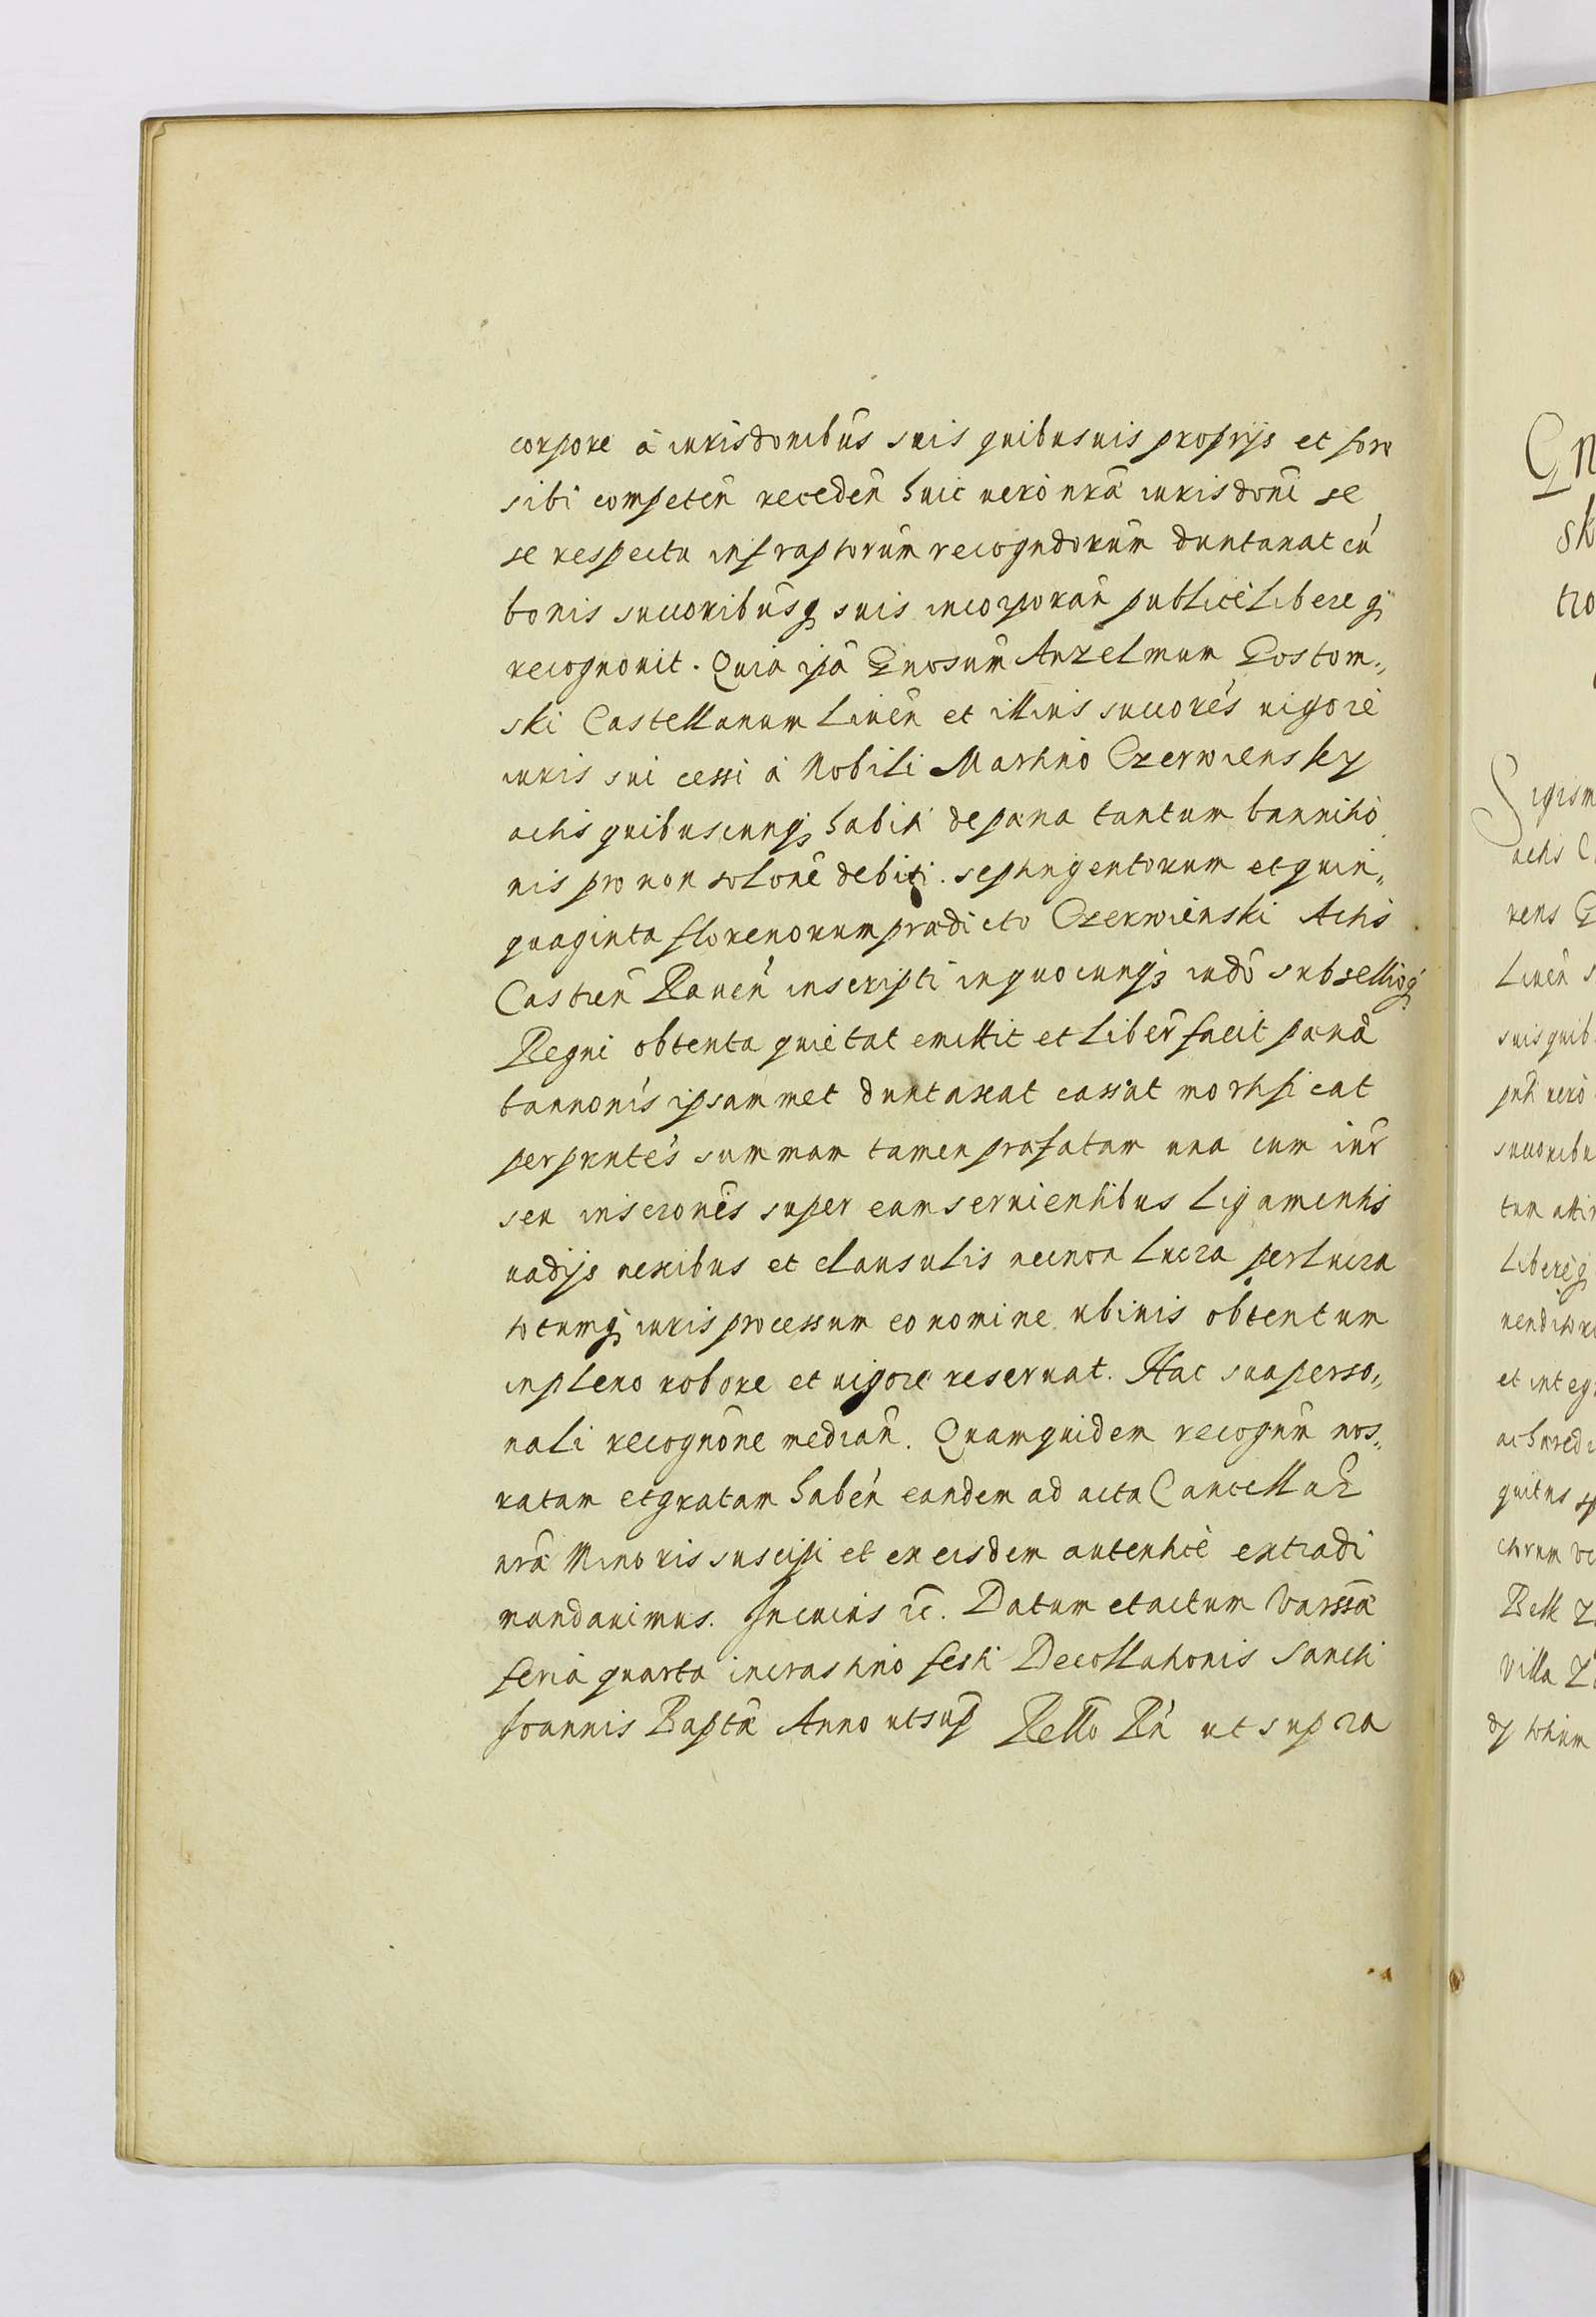 corpore à iurisdonibūs suis quibusuis proprijs et foro
sibi competen̄ receden̄ huic uerò nrã iurisdoni se
se respectu infraptorum recogndorum duntaxat cū
bonis succoribusq suis incorporan̄ publicè libereq
recognouit. Quia ipã Gnosum Anzelmum Gostom„
ski Castellanum Liuen̄ et illius succorēs uigore
iuris sui cessi à Nobili Martino Czerwiensky
actis quibuscunq habiti de pæna tantum bannitio
nis pro non solonē debiti septingentorum et quin„
quaginta florenorum prædicto Czerwienski Actis
Castren̄ Rauen̄ inscripti in quocunq iudō subsellioq
Regni obtenta quietat emittit et liber̄ facit pænā
bannonis ipsammet duntaxat cassat mortificat
per prntēs summam tamen præfatam una cum iur̄
seu inscronēs super eam seruientibus ligamentis
uadijs nexibus et clausulis necnon lucra perlucra
totumq iuris processum eo nomine ubiuis obtentum
in pleno robore et uigore reseruat. Hac sua perso„
nali recognōne median̄. Quamquidem recognm̄ nos„
ratam et gratam haben̄ eandem ad acta Cancellar̄
nrã Minoris suscipi et ex eisdem autenticè extradi
mandauimus. In cuius rē. Datum et actum Varssã
feria quarta in crastino festi Decollationis Sancti
Joannis Baptã Anno ut sup̄ Rellō Rn̄ ut supra
Gn
sk
tro
Sigism
actis C
rens G
Liuen̄ s
suis quib
pnti uerò
succoribu
tum atti
libereq
uendito
et integ
ac hæred
quitus sp
ctorum
Bell
Villa Z